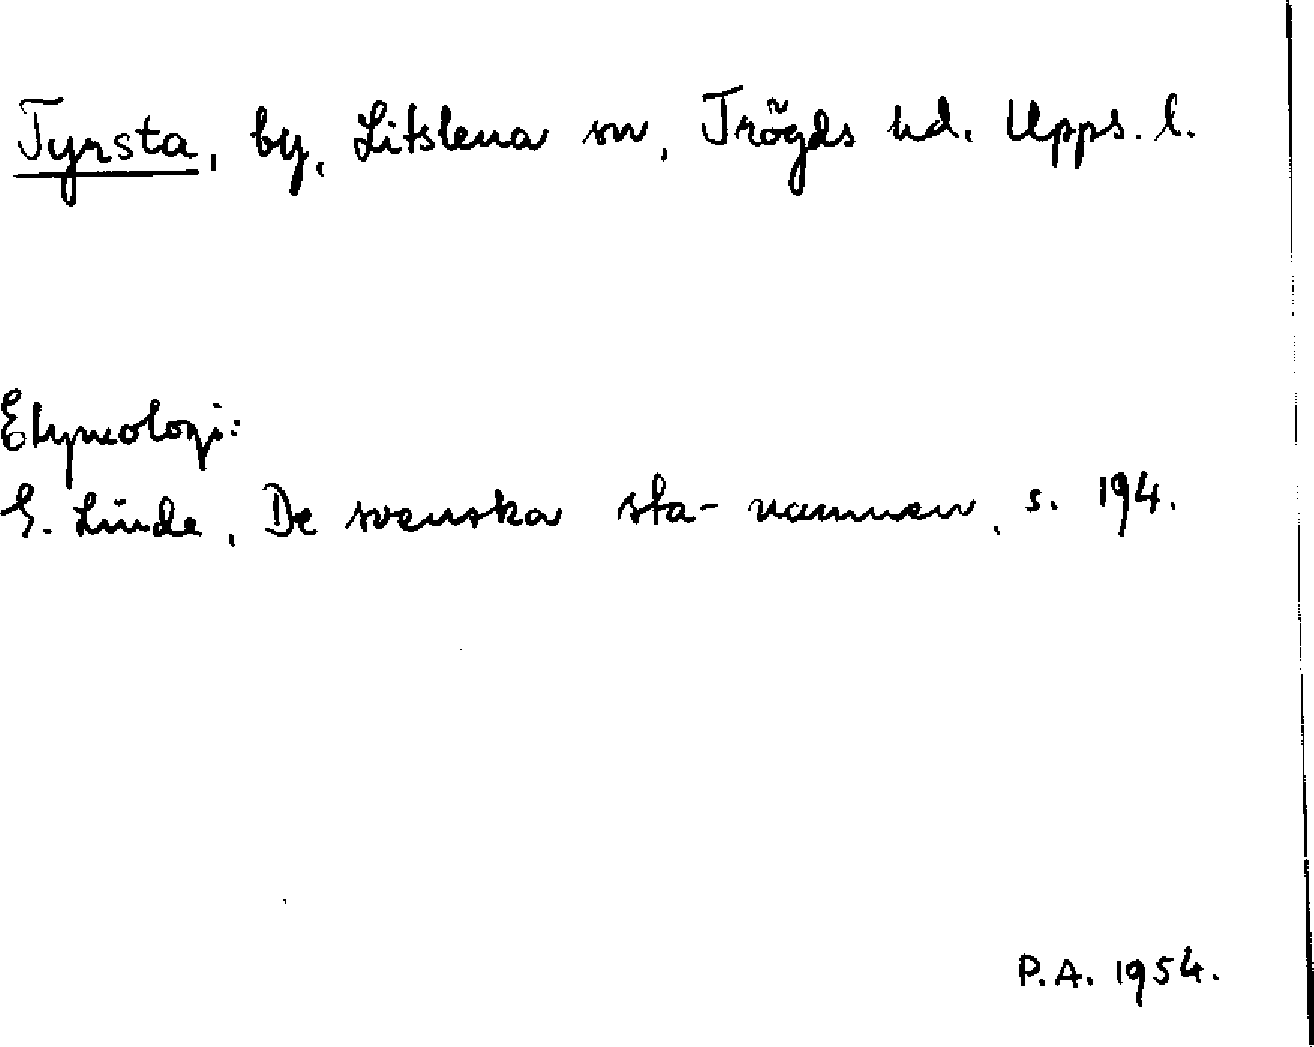 Tyrsta, by, Litslena sn, Trögds hd. Upps. l.
Etymologi:
G. Linde, De svenska sta-namnen, s. 194.
P.A. 1954.